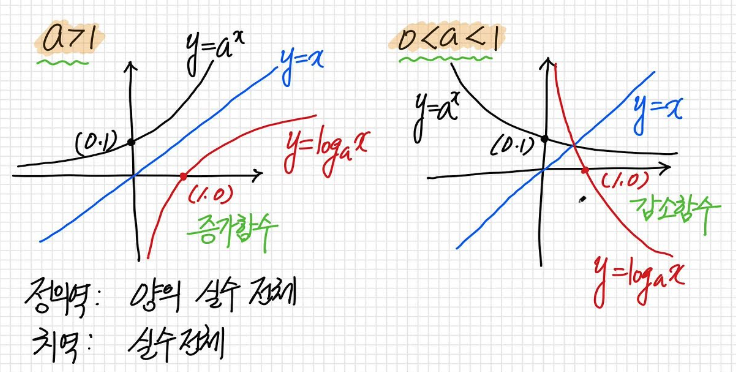 a>1
y=aˣ
y=x
(0.1)
y=logₐx
(1.0)
증가함수
0<a<1
y=aˣ
y=x
(0.1)
(1.0)
감소함수
y=logₐx
정의역: 양의 실수 전체
치역: 실수전체